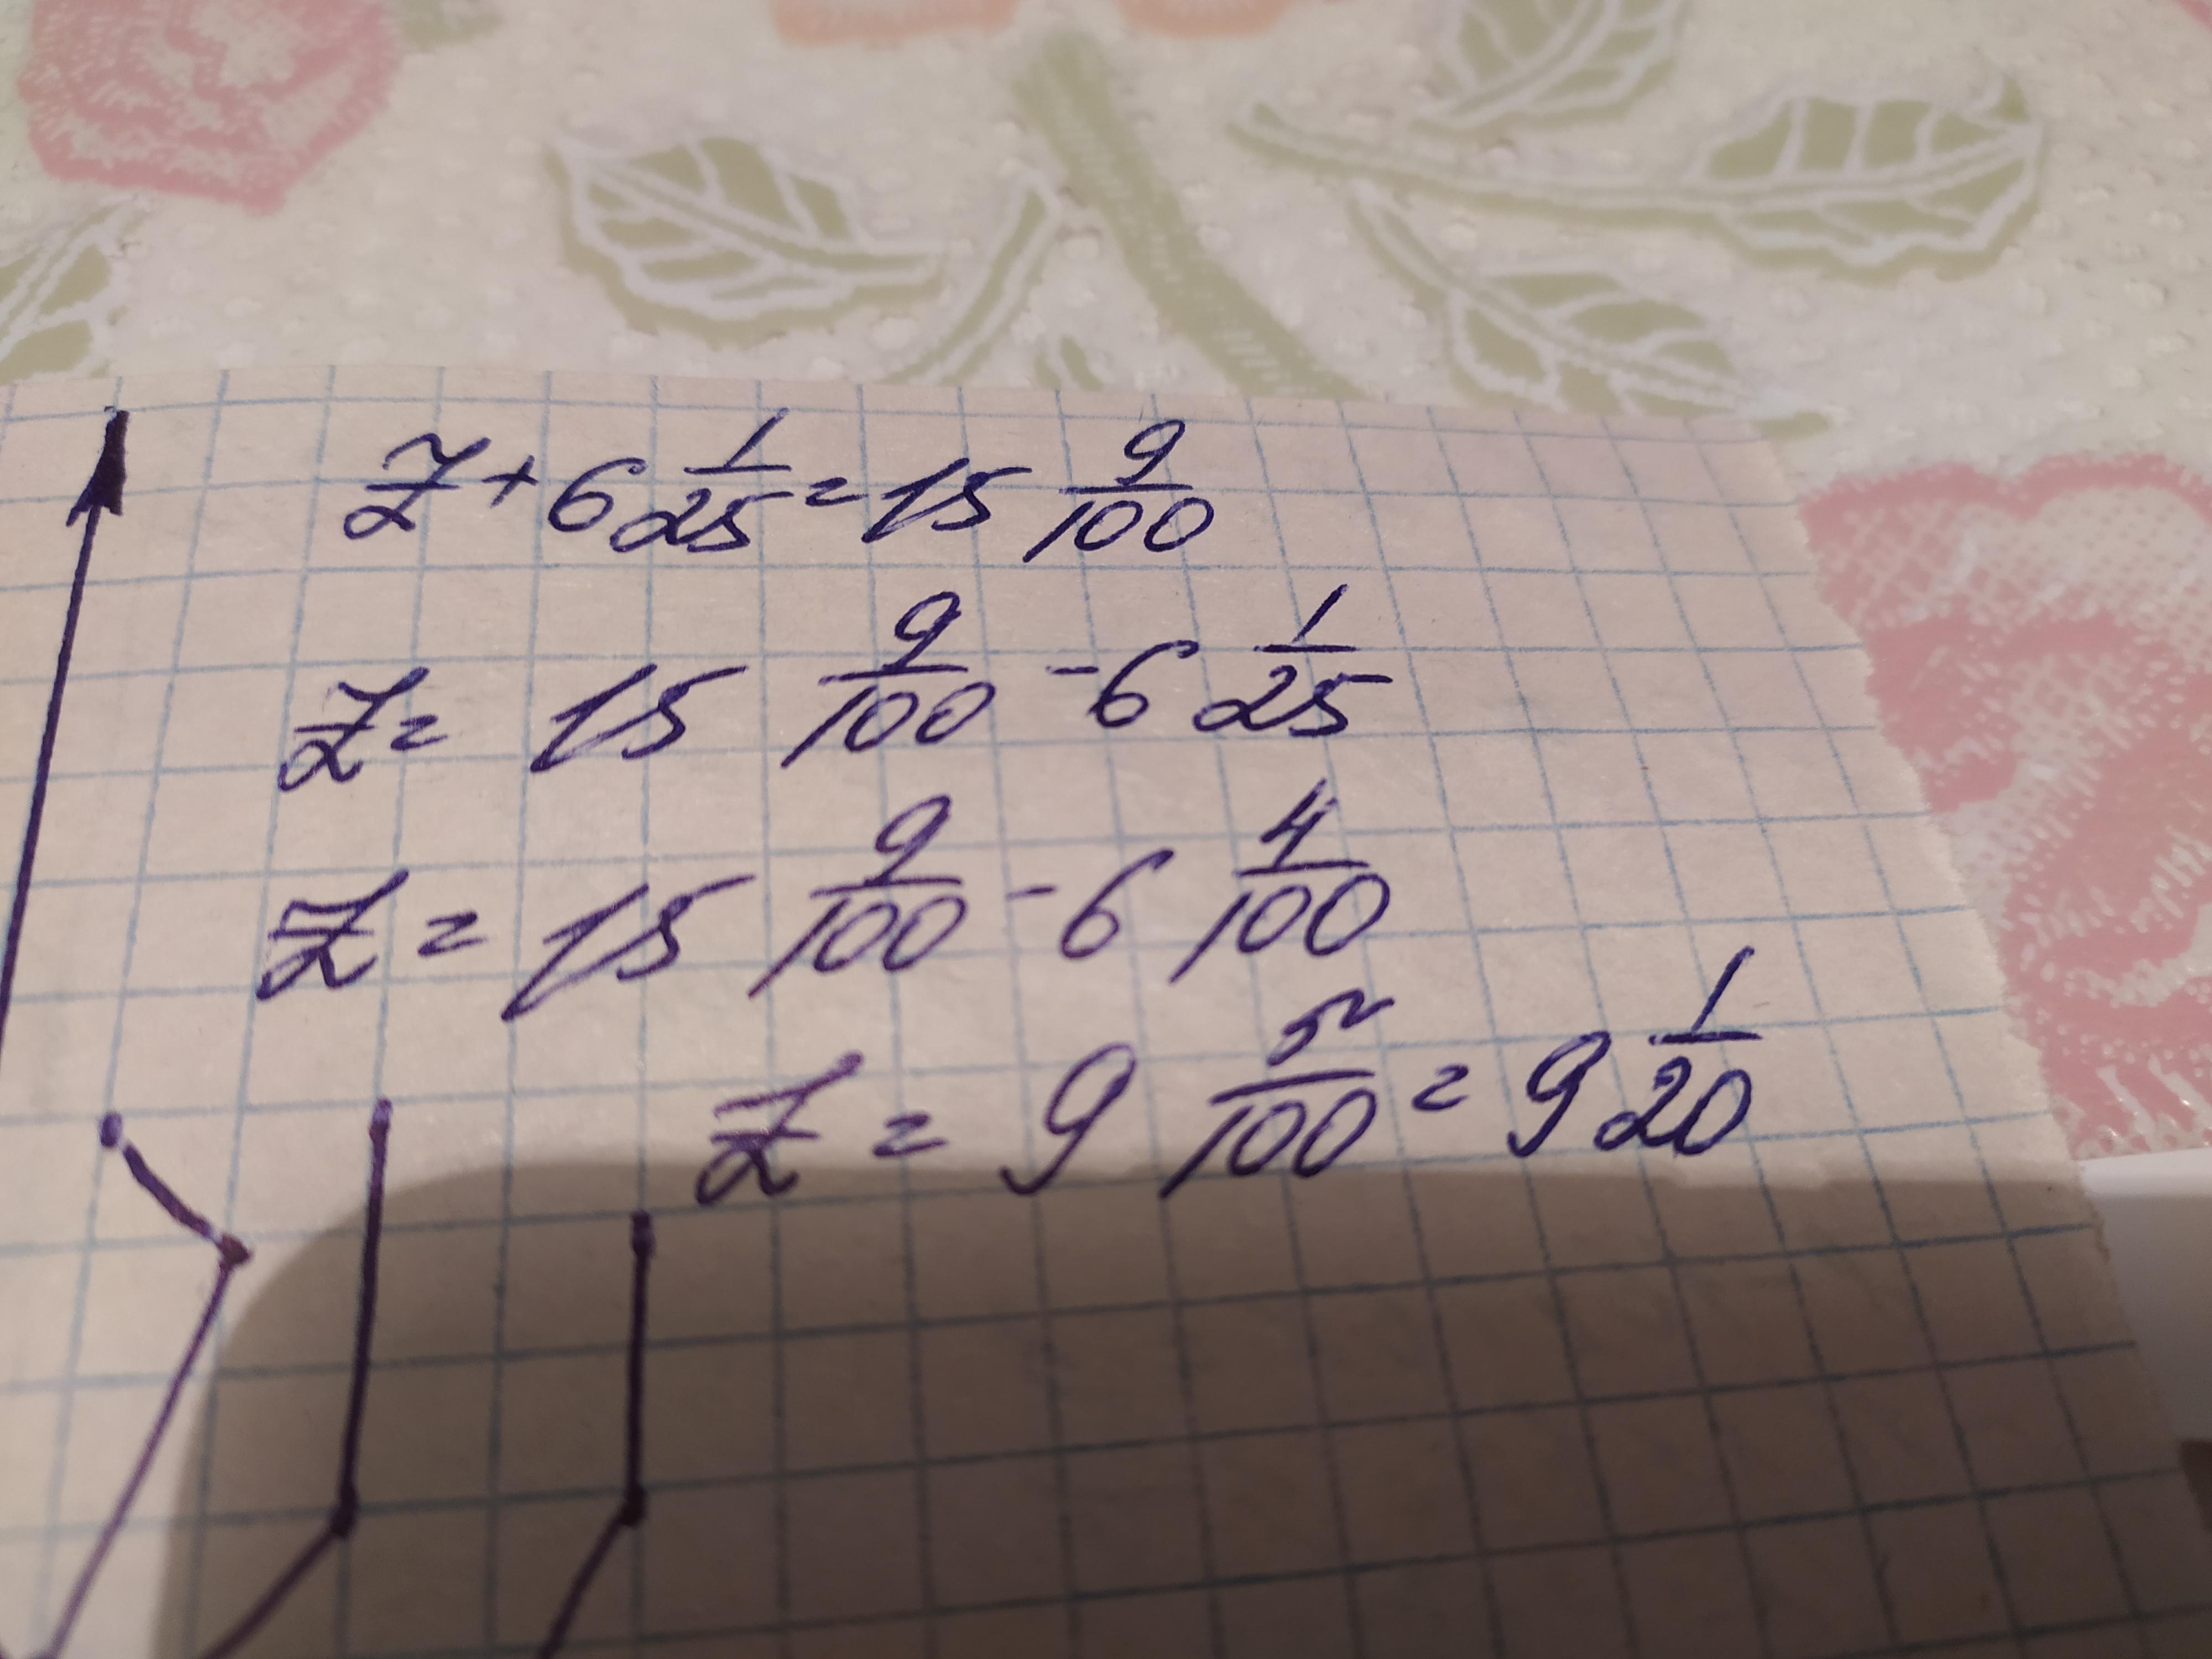 z + 6 1/25 = 15 9/100
z = 15 9/100 - 6 1/25
z = 15 9/100 - 6 4/100
z = 9 5/100 = 9 1/20